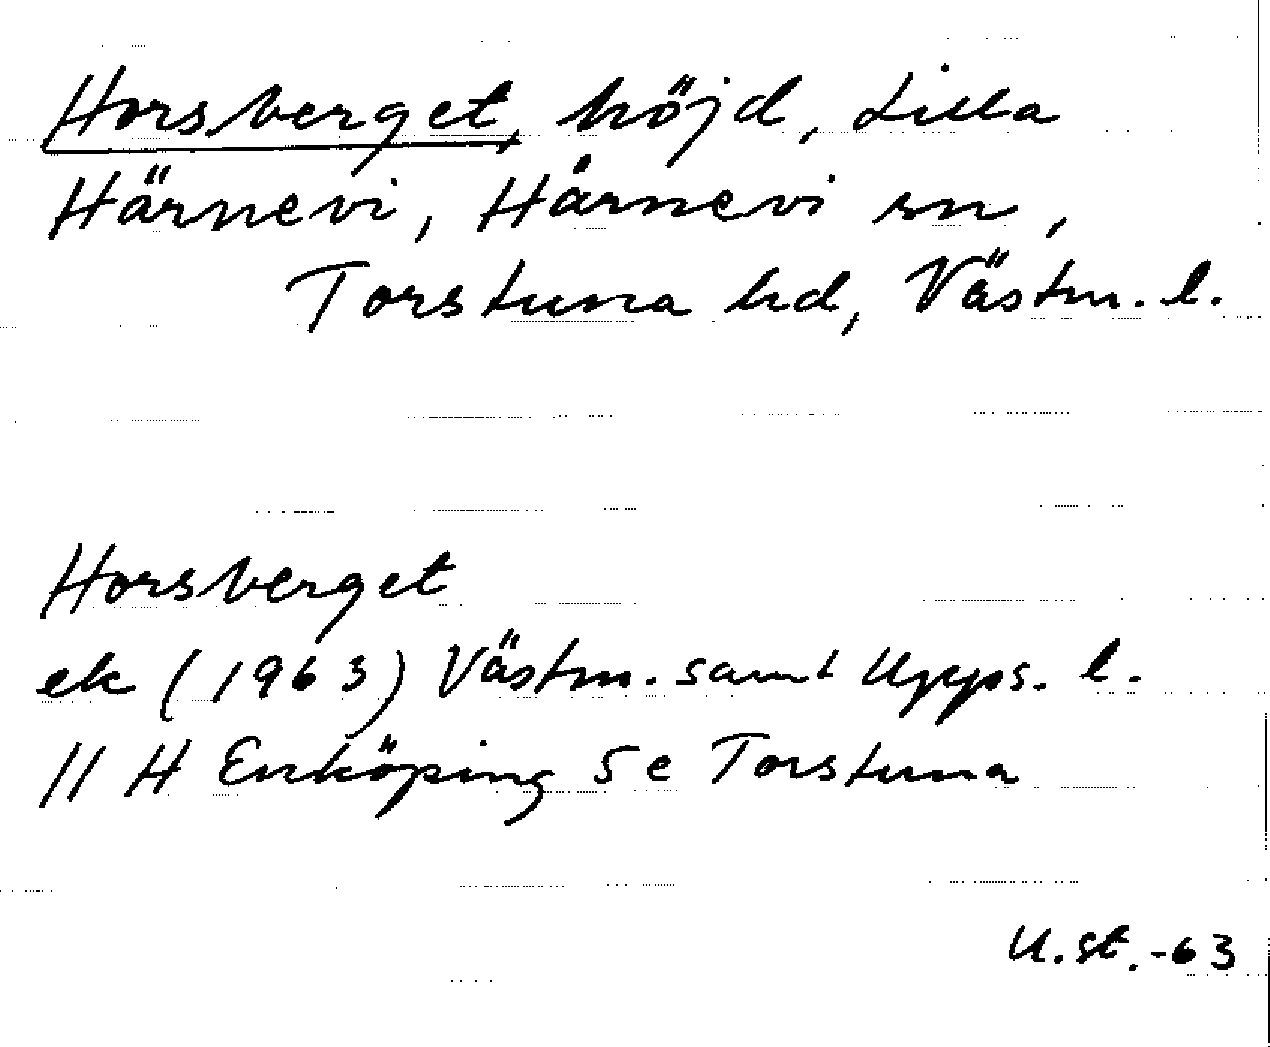 Horsberget, höjd, Lilla
Härnevi, Härnevi sn,
Torstuna hd, Västm. l.
Horsberget
ek (1963) Västm. samt Upps. l.
11 H Enköping 5e Torstuna
U.st.-63